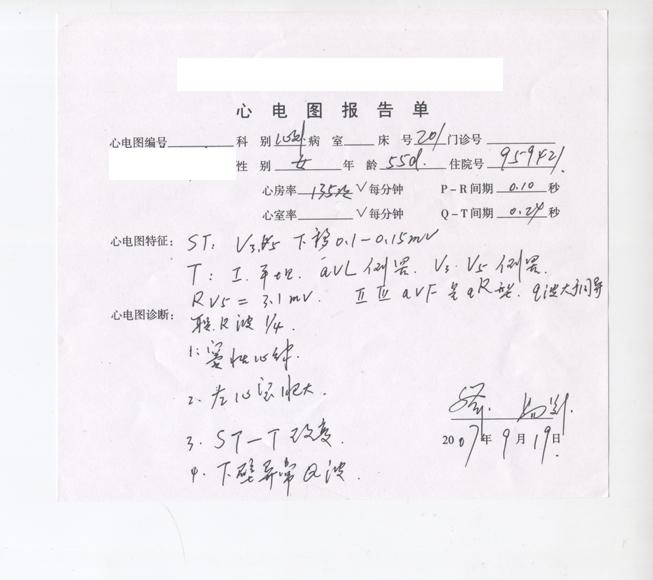 心电图报告单
心电图编号 科别 心内 病室 床号 201 门诊号
性别 女 年龄 55d. 住院号 959421
心房率 135次 √每分钟 P-R间期 0.10 秒
心室率 √每分钟 Q-T间期 0.24 秒
心电图特征: ST: V3.V5 下移0.1-0.15mV
T: I.平坦. aVL倒置. V3. V5倒置.
RV5=3.1mV. II III aVF呈qR型. q波大于同导
联R波1/4.
心电图诊断:
1: 窦性心
2. 左心室肥大
3. ST-T改变.
4. 下壁异常Q波.
2007年9月19日